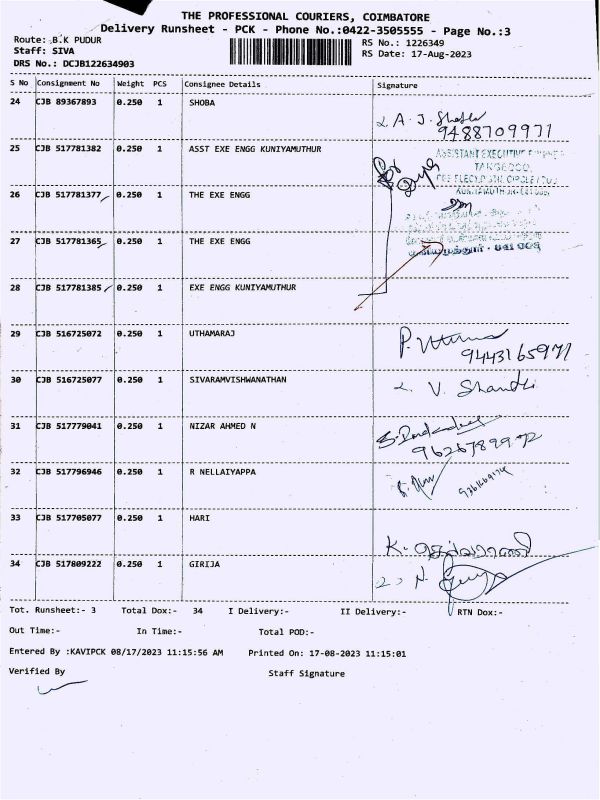 THE PROFESSIONAL COURIERS, COIMBATORE
Delivery Runsheet - PCK - Phone No.:0422-3505555 - Page No.:3
Route: B.K PUDUR
RS No.: 1226349
Staff: SIVA
RS Date: 17-Aug-2023
DRS No.: DCJB122634903
S No Consignment No Weight PCS Consignee Details Signature
24 CJB 89367893 0.250 1 SHOBA
A. J. 9488709971
25 CJB 517781382 0.250 1 ASST EXE ENGG KUNIYAMUTHUR
ASSISTANT EXECUTIVE
TANGEDCO,
26 CJB 517781377 0.250 1 THE EXE ENGG
27 CJB 517781365 0.250 1 THE EXE ENGG
28 CJB 517781385 0.250 1 EXE ENGG KUNIYAMUTHUR
29 CJB 516725072 0.250 1 UTHAMARAJ
P. 9443165971
30 CJB 516725077 0.250 1 SIVARAMVISHWANATHAN
V. Shanthi
31 CJB 517779041 0.250 1 NIZAR AHMED N
9626789972
32 CJB 517796946 0.250 1 R NELLAIYAPPA
33 CJB 517705077 0.250 1 HARI
K.
34 CJB 517809222 0.250 1 GIRIJA
N.
Tot. Runsheet:- 3 Total Dox:- 34 I Delivery:- II Delivery:- RTN Dox:-
Out Time:- In Time:- Total POD:-
Entered By :KAVIPCK 08/17/2023 11:15:56 AM Printed On: 17-08-2023 11:15:01
Verified By Staff Signature